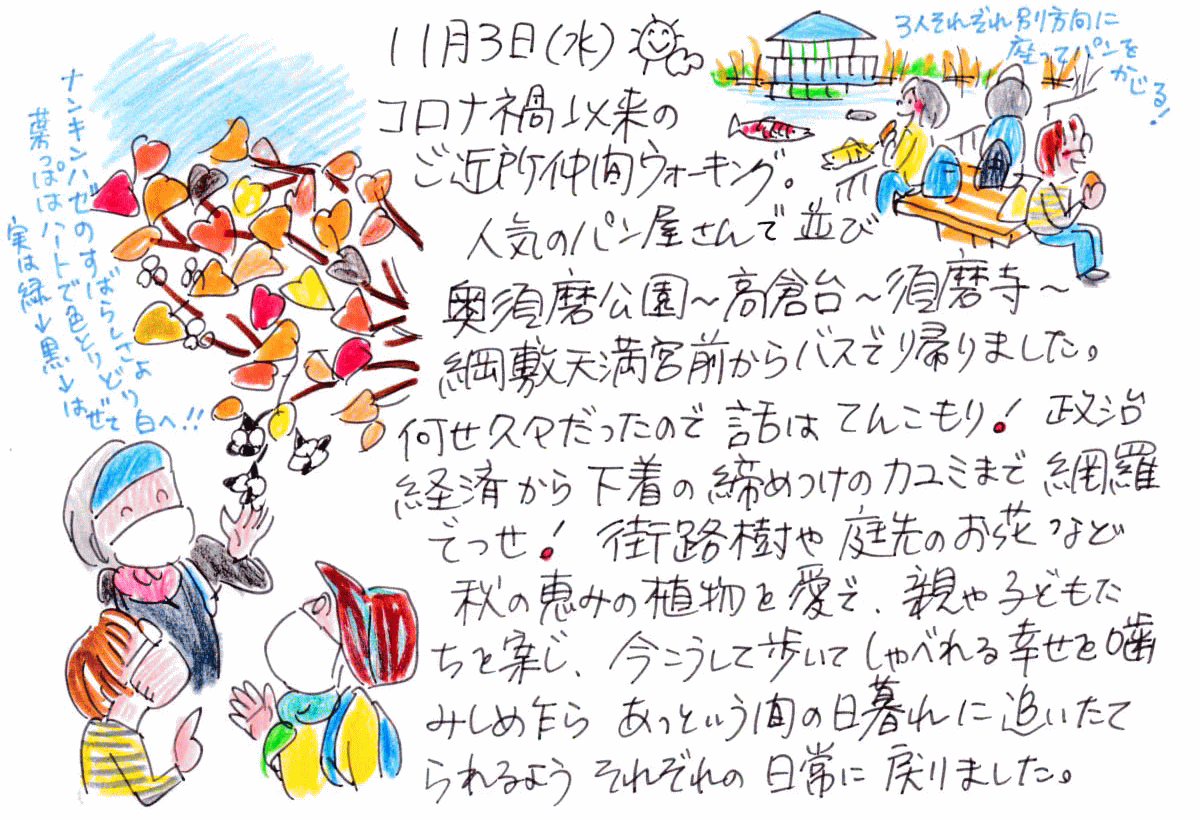 11月3日(水)
コロナ禍以来の
ご近所仲間ウォーキング。
人気のパン屋さんで並び
奥須磨公園~高倉台~須磨寺~
綱敷天満宮前からバスで帰りました。
何せ久々だったので話はてんこもり!政治
経済から下着の締めつけのカユミまで網羅
でっせ!街路樹や庭先のお花など
秋の恵みの植物を愛で、親や子どもた
ちを案じ、今こうして歩いてしゃべれる幸せを噛
みしめ乍らあっという間の日暮れに追いたて
られるようそれぞれの日常に戻りました。
3人それぞれ別方向に
座ってパンを
かじる!
ナンキンハゼのすばらしさよ
葉っぱはハートで色とりどり
実は緑→黒→はぜて白へ!!